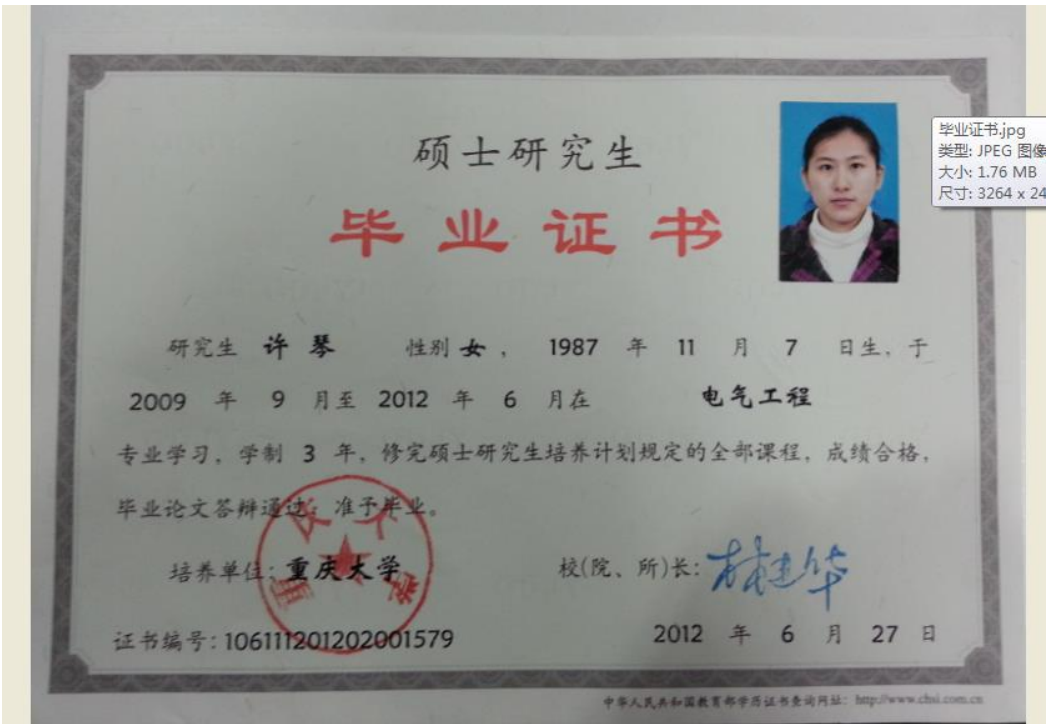 硕士研究生
毕业证书
毕业证书.jpg
类型: JPEG 图像
大小: 1.76 MB
尺寸: 3264 x 24
研究生 许琴 性别 女 , 1987 年 11 月 7 日生, 于
2009 年 9 月至 2012 年 6 月在 电气工程
专业学习, 学制 3 年, 修完硕士研究生培养计划规定的全部课程, 成绩合格,
毕业论文答辩通过, 准予毕业。
培养单位: 重庆大学 校(院、所)长: 林建华
重庆大学
证书编号: 106111201202001579 2012 年 6 月 27 日
中华人民共和国教育部学历证书查询网址: http://www.chsi.com.cn